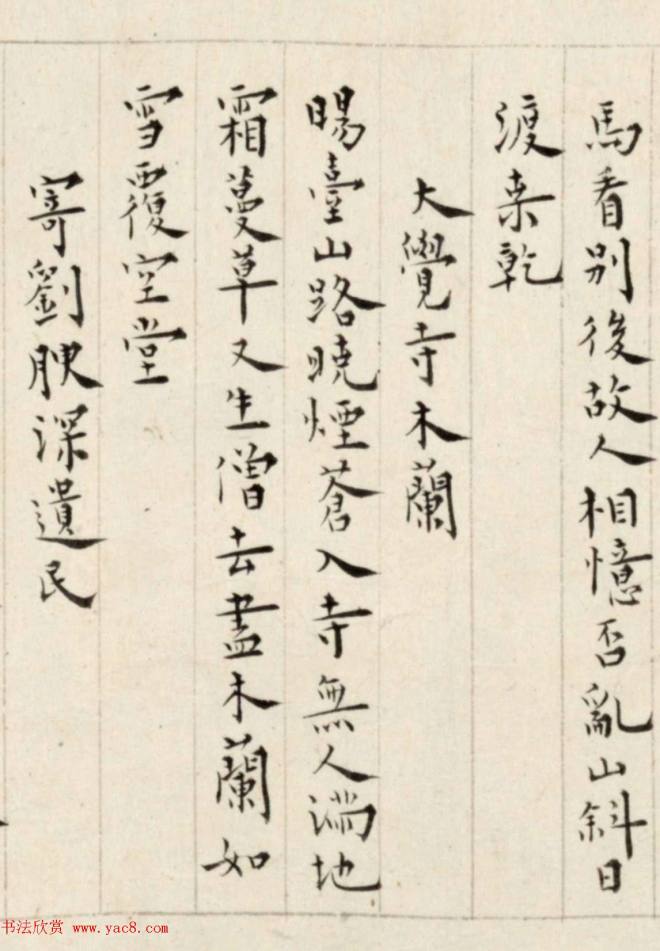 馬看別後故人相憶否亂山斜日
渡桑乾
大覺寺木蘭
暘臺山路曉煙蒼入寺無人滿地
霜蔓草又生僧去盡木蘭如
雪覆空堂
寄劉腴深遺民
书法欣赏 www.yac8.com